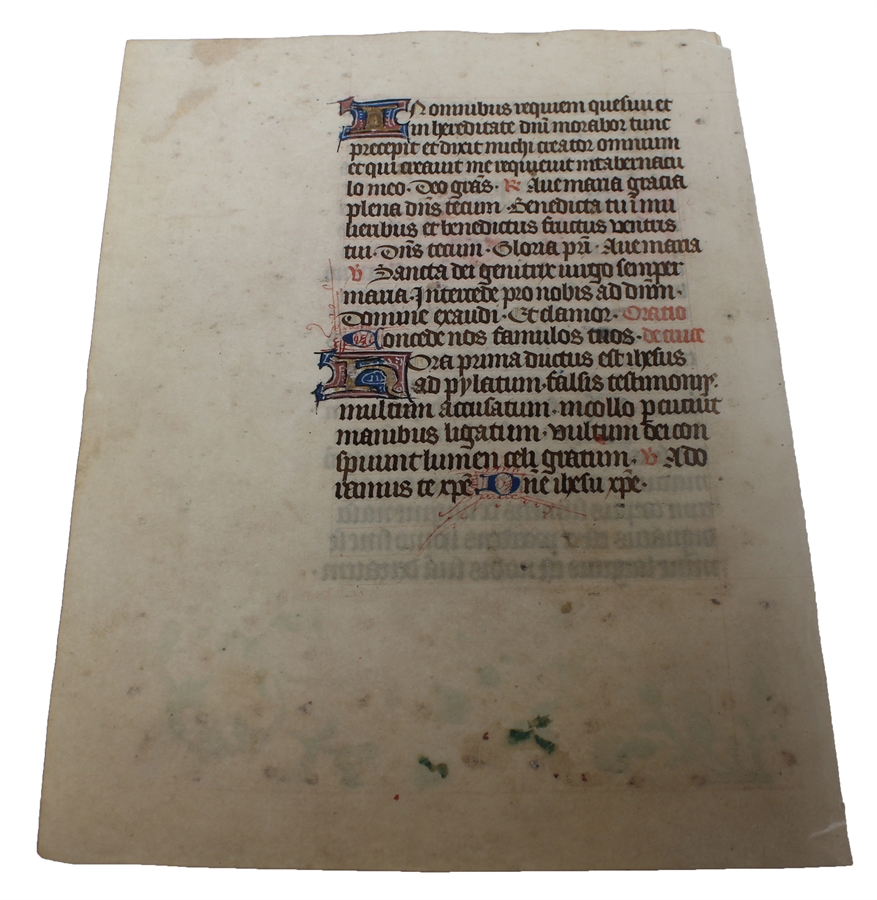 In omnibus requiem quesiui et
in hereditate dnī morabor tunc
precepit et dixit michi creator omnium
et qui creauit me requieuit in tabernacu
lo meo · Deo grās · R̷ Aue maria gracia
plena dn̄s tecum · Benedicta tu ī mu
lieribus et benedictus fructus ventris
tui · Dn̄s tecum · Gloria pr̄i · Aue maria
V Sancta dei genitrix uirgo semper
maria · Intercede pro nobis ad dn̄m ·
Domine exaudi · Et clamor · Oratio
Concede nos famulos tuos · de cruce
Hora prima ductus est ihesus
ad pylatum · falsis testimonijs ·
multum accusatum · in collo percuciūt
manibus ligatum · vultum dei con
spuunt lumen celi gratum · V Ado
ramus te xp̄e · Dn̄e ihesu xp̄e ·